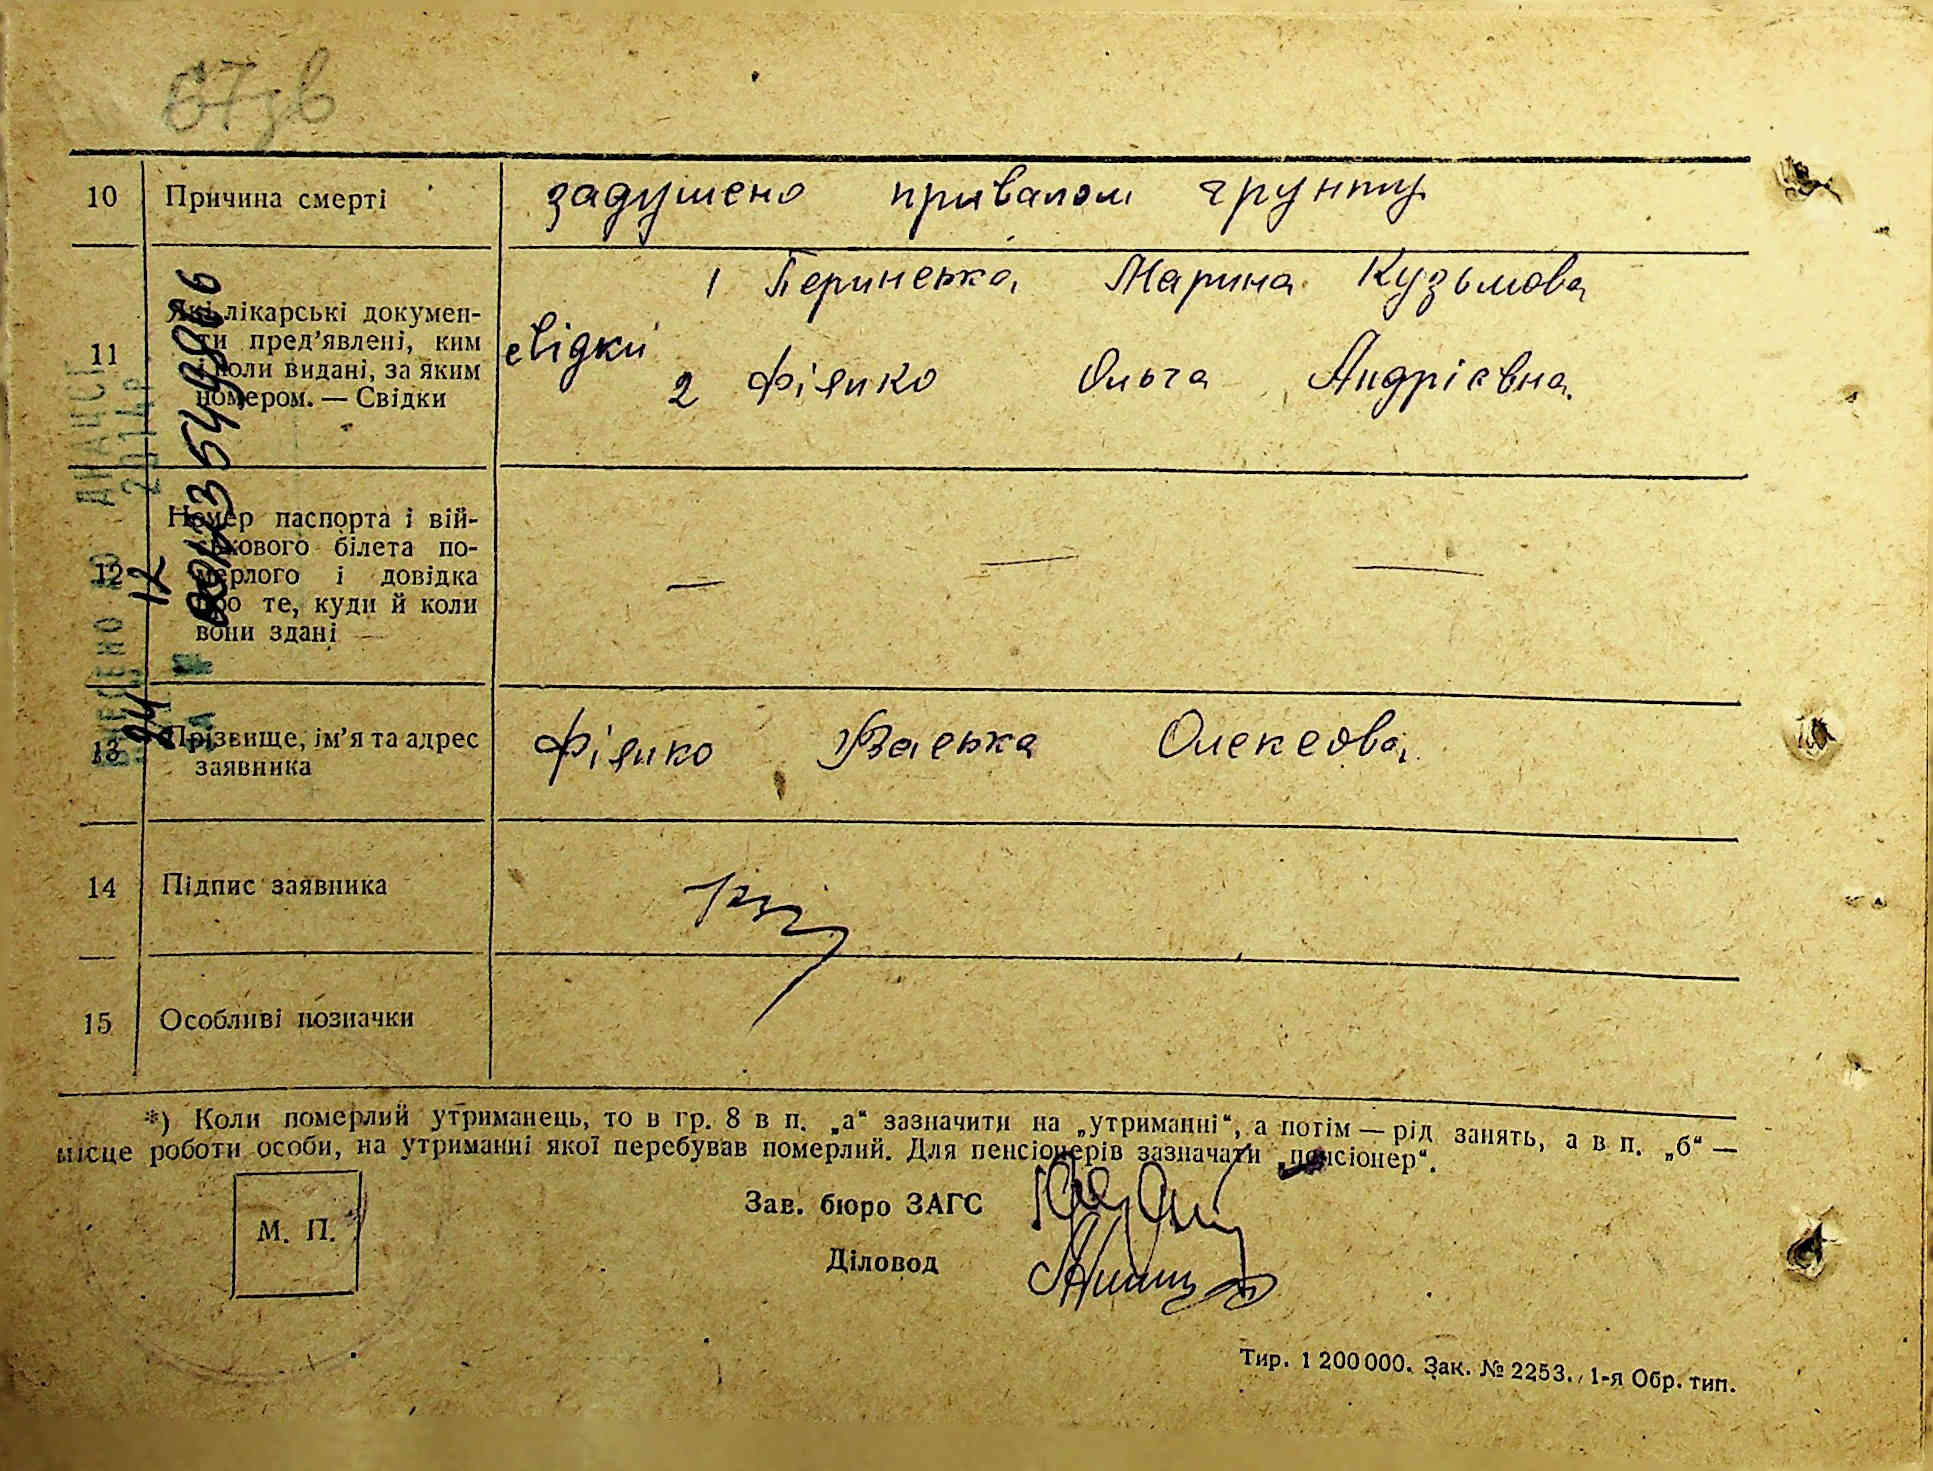 67зв
10 Причина смерті задушено привалом грунту
11 Які лікарські докумен-
ти пред’явлені, ким
і коли видані, за яким
номером. — Свідки
свідки
1 Марина Кузьмова
2 Фіялко Ольга Андрієвна.
12 Номер паспорта і вій-
ськового білета по-
мерлого і довідка
про те, куди й коли
вони здані — — —
13 Прізвище, ім’я та адрес
заявника
Фіялко Васька Олексова
14 Підпис заявника
15 Особливі позначки
*) Коли померлий утриманець, то в гр. 8 в п. „а“ зазначити на „утриманні“, а потім — рід занять, а в п. „б“ —
місце роботи особи, на утриманні якої перебував померлий. Для пенсіонерів зазначати „пенсіонер“.
М. П.
Зав. бюро ЗАГС
Діловод
Тир. 1 200 000. Зак. № 2253. 1-я Обр. тип.